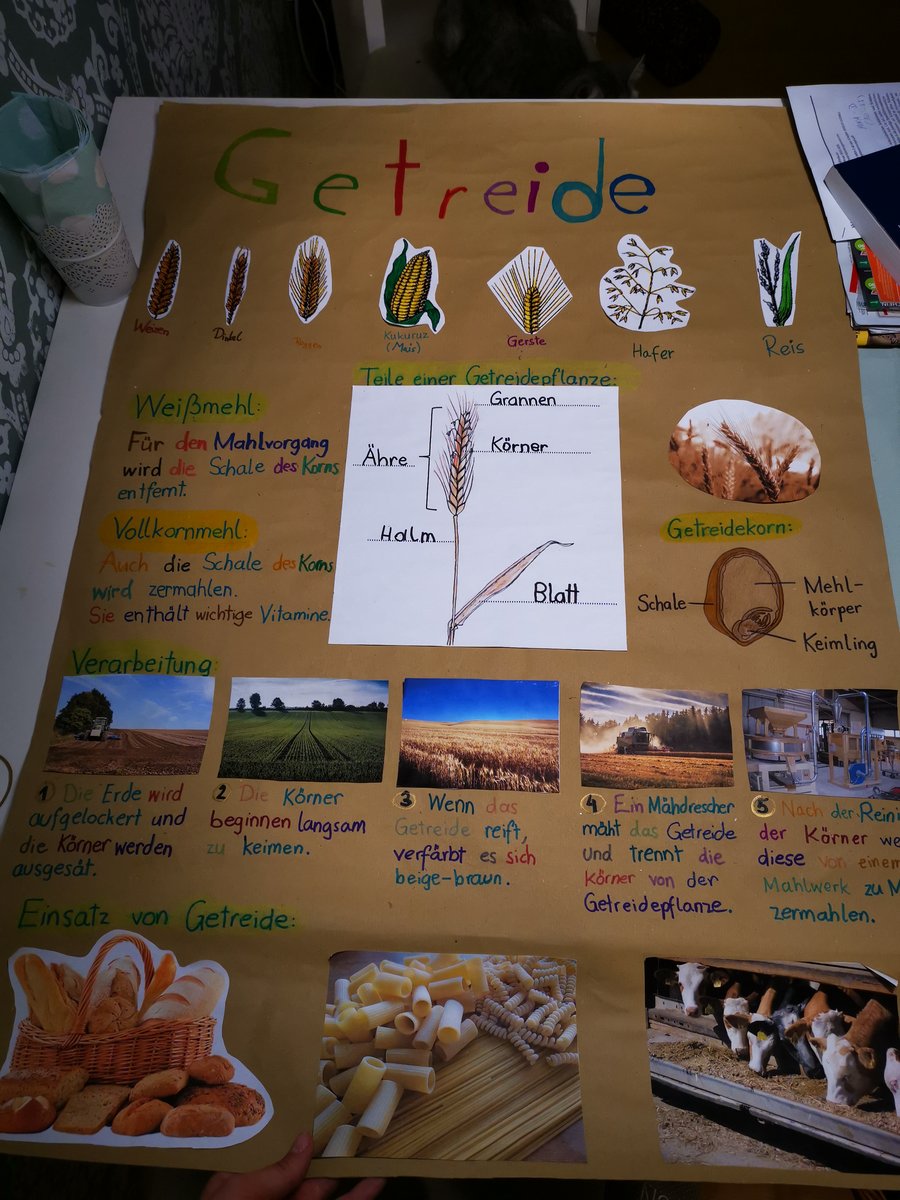 Getreide
Weizen
Dinkel
Roggen
Kukuruz
(Mais)
Gerste
Hafer
Reis
Teile einer Getreidepflanze:
Grannen
Körner
Ähre
Halm
Blatt
Weißmehl:
Für den Mahlvorgang
wird die Schale des Korns
entfernt.
Vollkornmehl:
Auch die Schale des Korns
wird zermahlen.
Sie enthält wichtige Vitamine.
Getreidekorn:
Schale
Mehl-
körper
Keimling
Verarbeitung:
1 Die Erde wird
aufgelockert und
die Körner werden
ausgesät.
2 Die Körner
beginnen langsam
zu keimen.
3 Wenn das
Getreide reift,
verfärbt es sich
beige-braun.
4 Ein Mähdrescher
mäht das Getreide
und trennt die
Körner von der
Getreidepflanze.
5 Nach der Reini
der Körner we
diese von einem
Mahlwerk zu M
zermahlen.
Einsatz von Getreide: